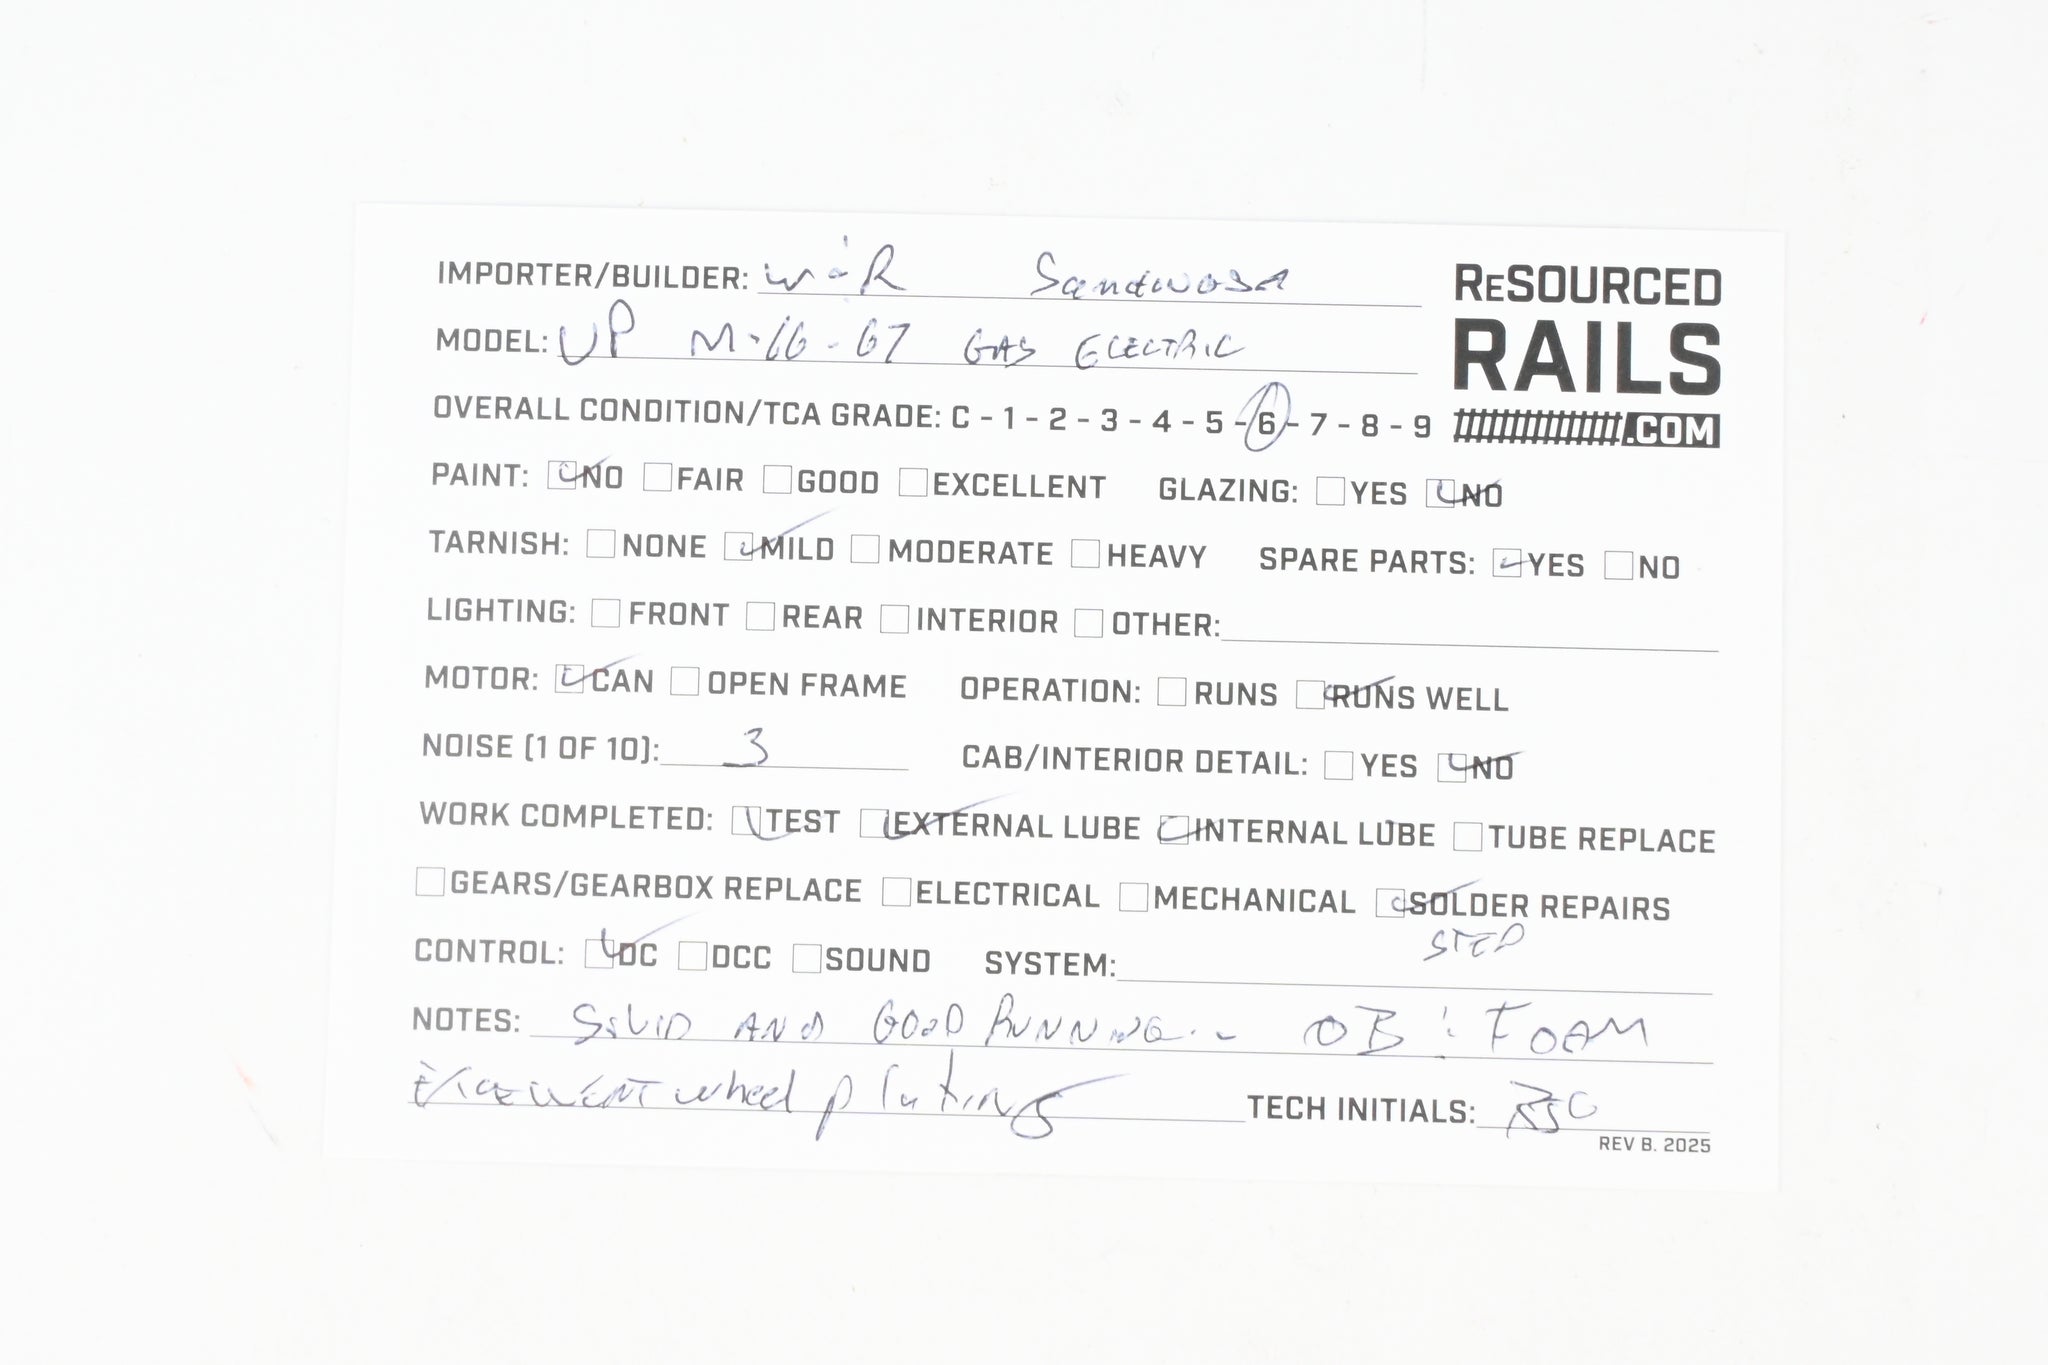 IMPORTER/BUILDER: W&R Samhongsa
RESOURCED
RAILS
.COM
MODEL: UP M-66-67 GAS ELECTRIC
OVERALL CONDITION/TCA GRADE: C - 1 - 2 - 3 - 4 - 5 - 6 - 7 - 8 - 9
PAINT: NO FAIR GOOD EXCELLENT GLAZING: YES NO
TARNISH: NONE MILD MODERATE HEAVY SPARE PARTS: YES NO
LIGHTING: FRONT REAR INTERIOR OTHER:
MOTOR: CAN OPEN FRAME OPERATION: RUNS RUNS WELL
NOISE (1 OF 10): 3 CAB/INTERIOR DETAIL: YES NO
WORK COMPLETED: TEST EXTERNAL LUBE INTERNAL LUBE TUBE REPLACE
GEARS/GEARBOX REPLACE ELECTRICAL MECHANICAL SOLDER REPAIRS
STEP
CONTROL: DC DCC SOUND SYSTEM:
NOTES: SOLID AND GOOD RUNNING.. OB : FOAM
EXCELLENT wheel plating TECH INITIALS:
REV B. 2025